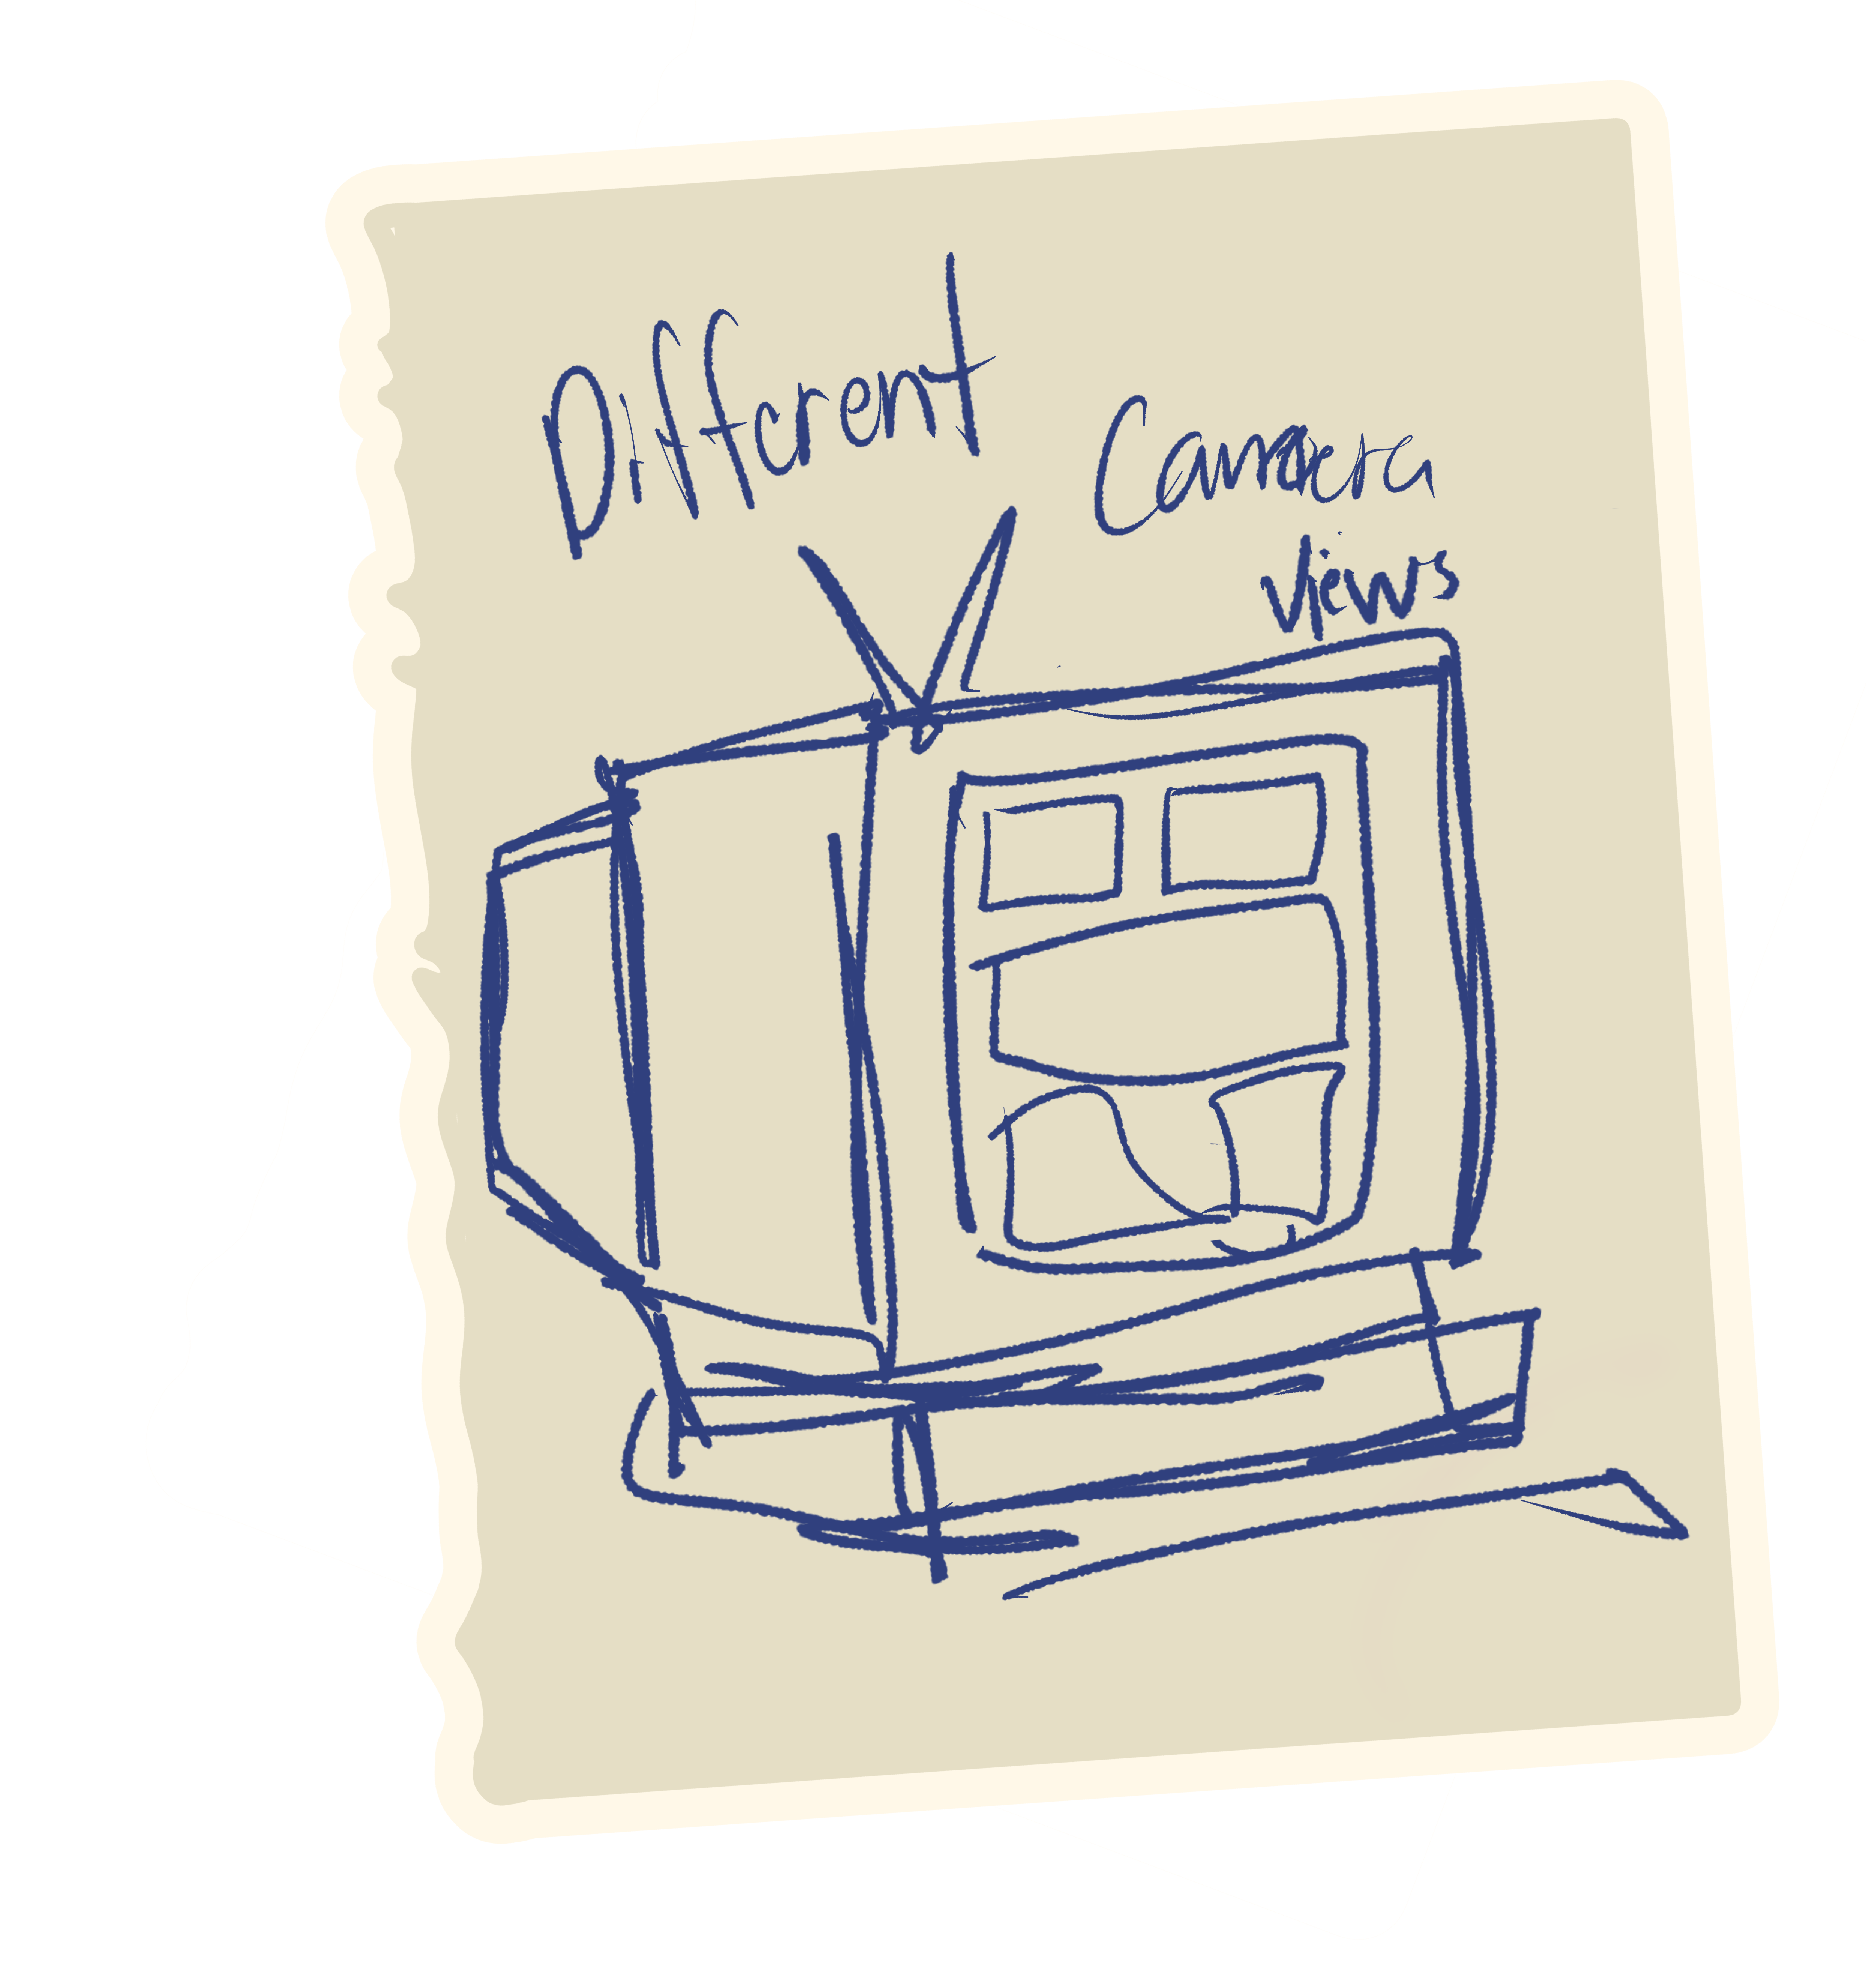 Different
Camera
views